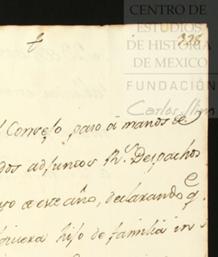 CENTRO DE
ESTUDIOS
DE HISTORIA
DE MEXICO
FUNDACIÓN
Carlos Slim
326
Consejo, paso á manos de
dos adjuntos Rs. Despachos
de este año, declarando q.
hijo de familia in